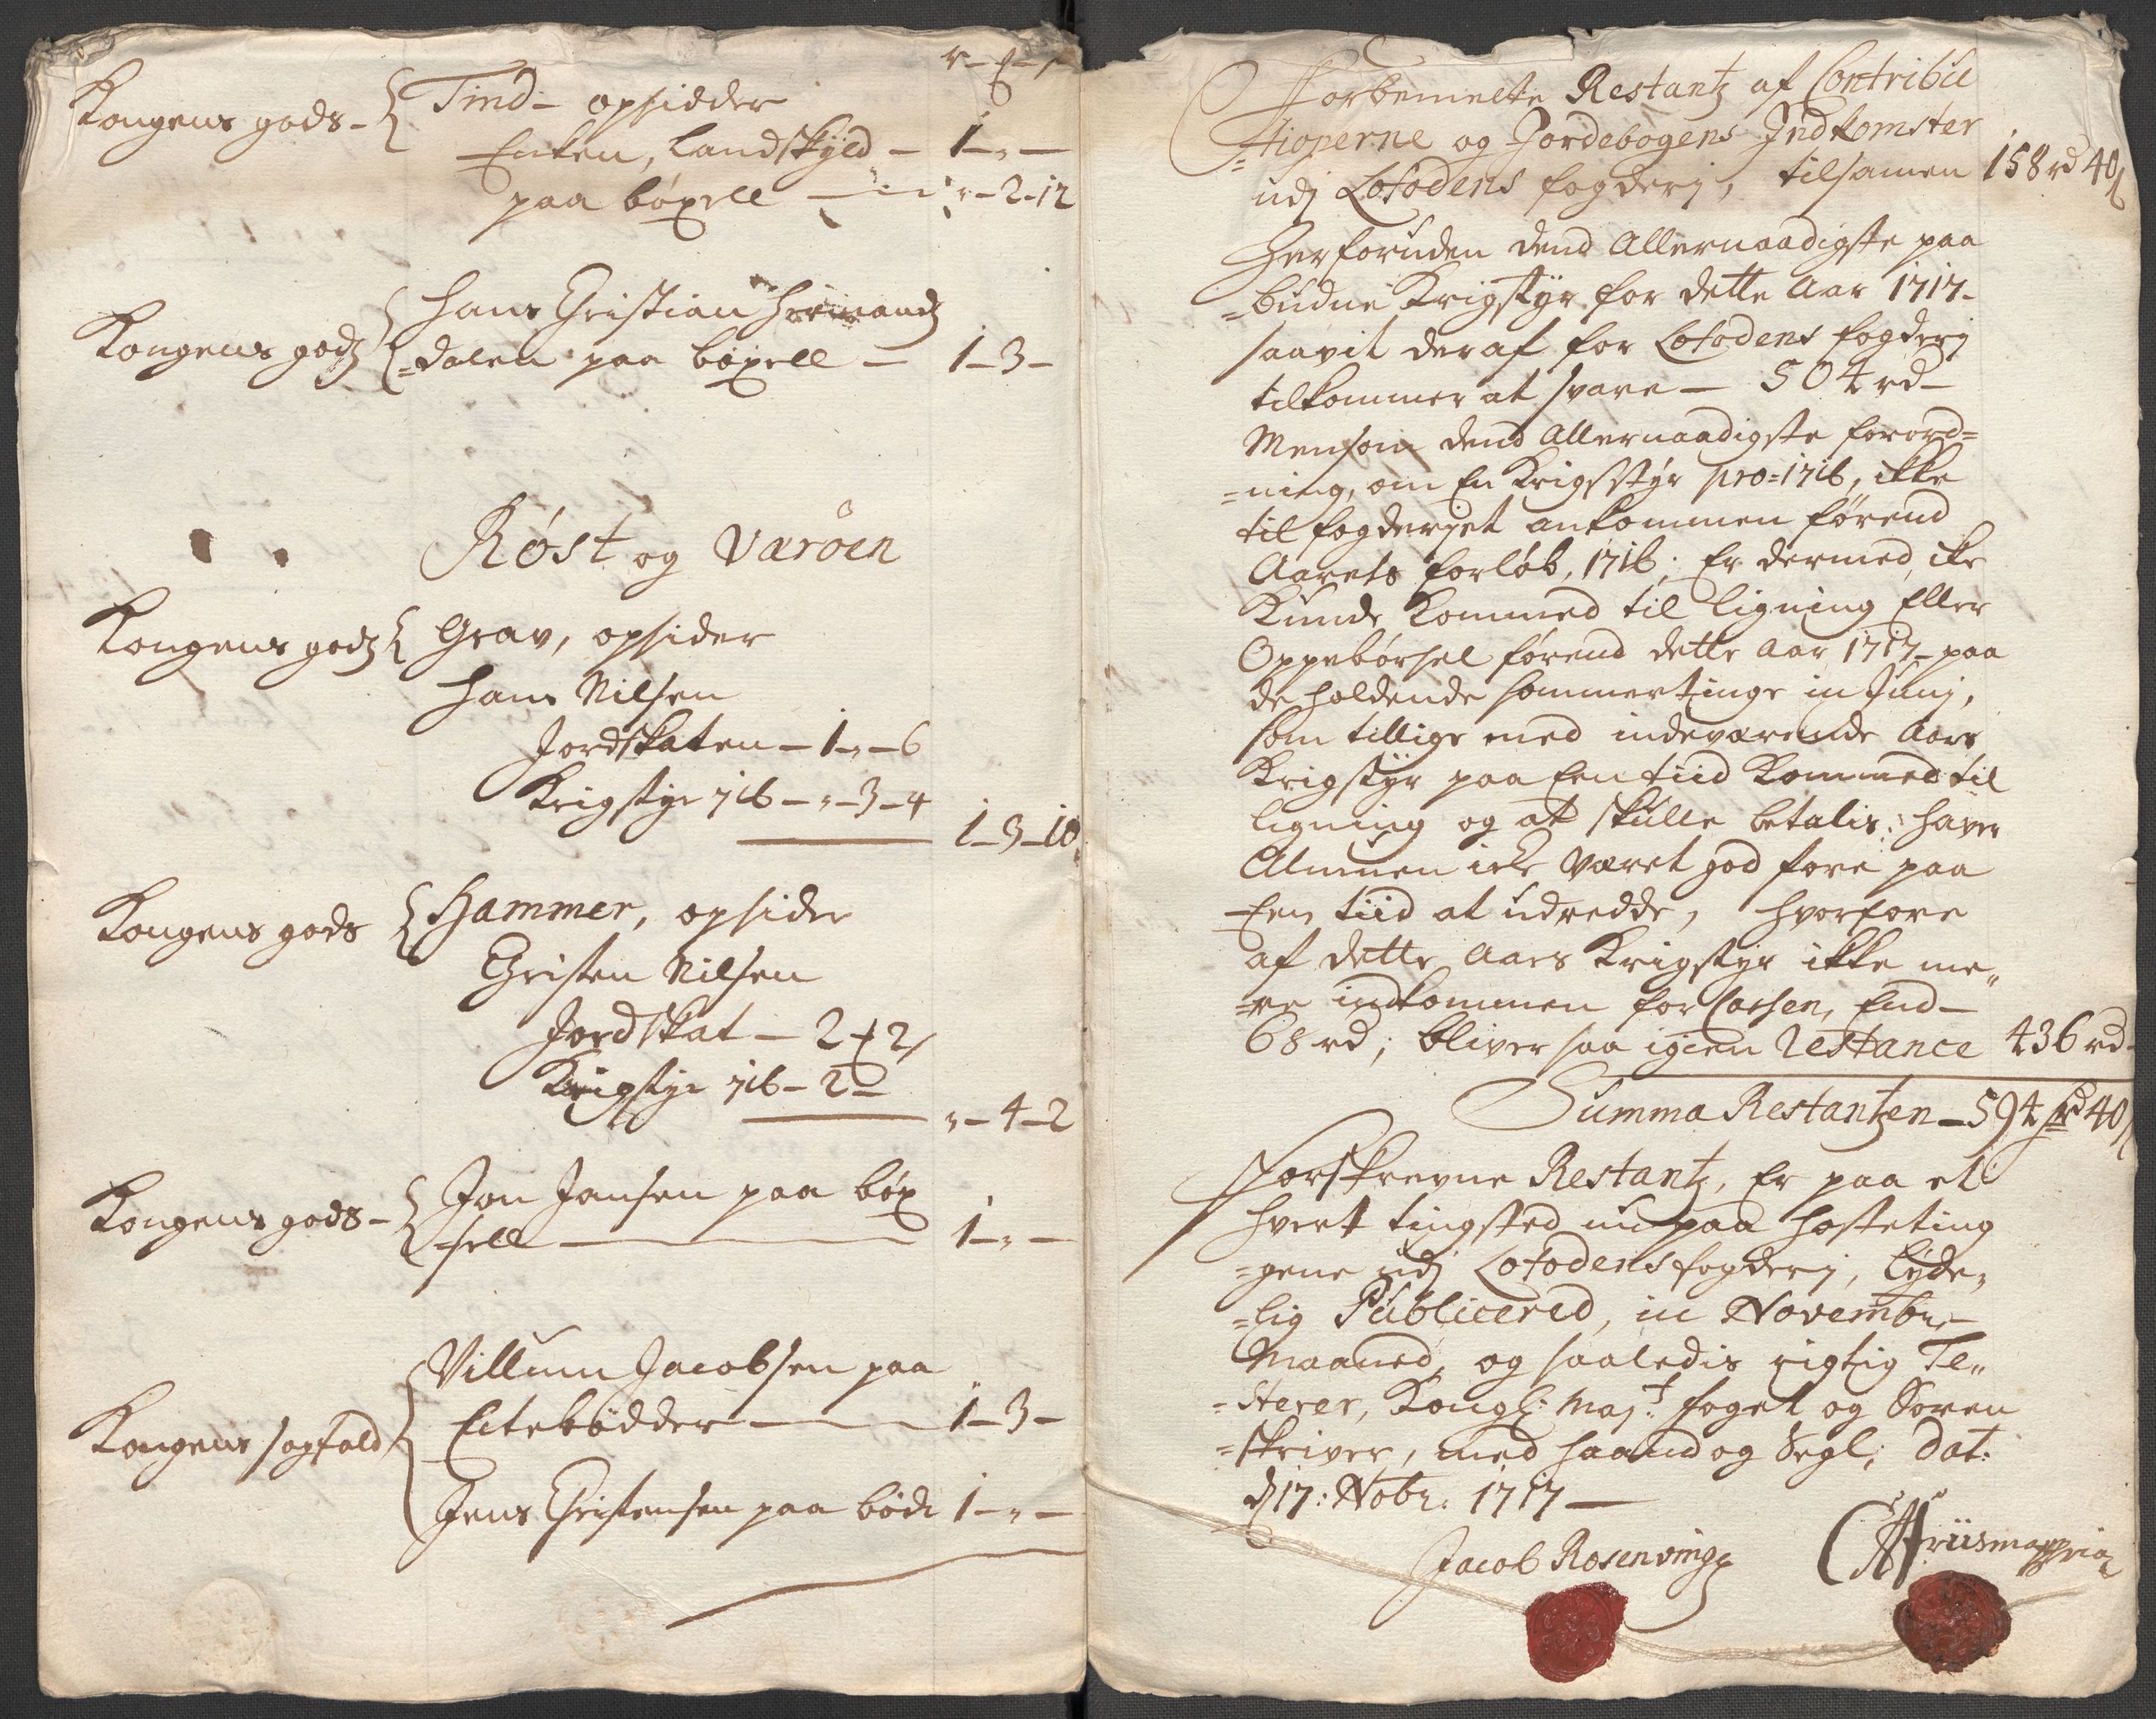 r – ȝ – s
Kongens gods – { Tind – opsidder
Enken, Landskyld – 1 – „ –
paa böxell – „ – 2 – 12
Kongens godz { Hans Christian Hermandz
=dalen paa böxell – 1 – 3 –
Røst og Værøen
Kongens godz { Grav, opsider
Hans Nilsen
Jordskaten – 1 – „ – 6
Krigstyr 716 – „ – 3 – 4
1 – 3 – 10
Kongens gods { Hammer, opsider
Christen Nilsen
Jordskat – 2 ȝ 2 s
Krigstyr 716 – 2 –
„ – 4 – 2
Kongens gods – { Jon Jansen paa böx
sell – 1 – „ –
Villum Jacobsen paa
Kongens sagfald { Ectebödder – 1 – 3 –
Jens Christensen paa böde 1 – „ –
Forbemelte Restantz af Contribu
=tioperne og Jordebogens Indkomster
udj Lofodens fogderj, tilsamen 158 rd 40 s
Herforuden dend Allernaadigste paa
=budne Krigstyr for dette Aar 1717 –
saavit deraf for Lofodens fogderj
tilkommer at svare – 504 rd –
Menson dend Allernaadigste forord=
=ning, om En Krigsstyr pro = 1716, ikke
til fogderjet ankommen förend
Aarets forlöb, 1716; Er dermed, icke
Kunde Kommed til Ligning Eller
Oppebörsel förend dette Aar 1717 – paa
de holdende Sommertinge in Junj,
som tillige med indeværende Aars
Krigstyr paa Een tiid Kommed til
Ligning og at skulle betalis: haver
Almuen icke været god fore paa
Een tiid at udredde, hvorfore
af dette Aars Krigstyr ikke me„
=re indkommen for Cassen, End –
68 rd; bliver saa igien Restance 436 rd –
Summa Restantzen – 594 rd 40 s
Forskrevne Restantz, Er paa et
hvert tingsted nu paa Hösteting
=gene udj Lofodens fogderj, Lyde„
=lig Publicered, in Novembr.
Maaned, og saaledis rigtig Te„
=sterer, Kongl: Maj:t foget og Soren
=skriver, med Haand og Segl; Dat:
d 17: Nobr: 1717 –
Jacob Rosenvinge